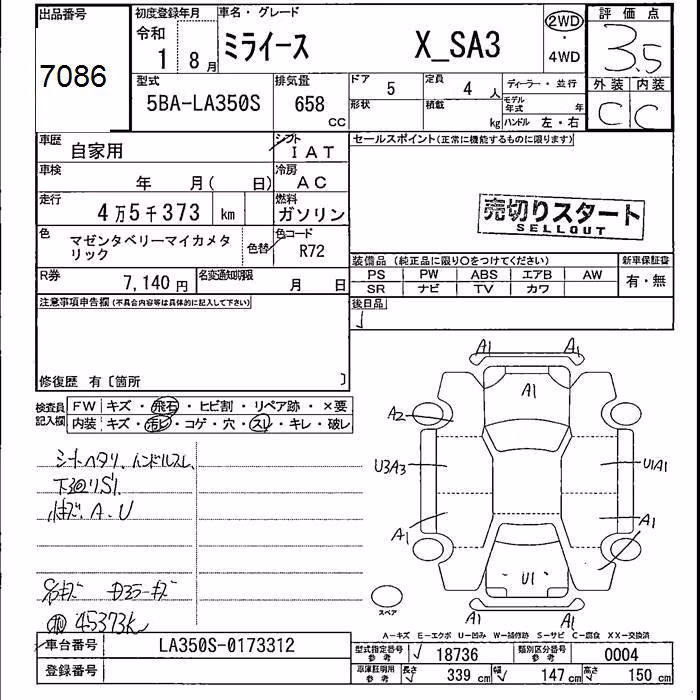 出品番号
7086
初度登録年月
令和
1 8月
車名・グレード
ミライース X_SA3
2WD
・
4WD
評価点
3.5
型式
5BA-LA350S
排気量
658
CC
ドア 5
定員 4 人
ディーラー・並行
形状
積載 kg
モデル年式 年
ハンドル 左・右
外装 内装
C C
車歴
自家用
シフト
IAT
セールスポイント(正常に機能するものに限ります)
車検
年 月( 日)
冷房
AC
走行
4万5千373 km
燃料
ガソリン
売切りスタート
SELLOUT
色
マゼンタベリーマイカメタリック
色替
色コード
R72
装備品(純正品に限り○をつけてください)
新車保証書
PS PW ABS エアB AW
有・無
SR ナビ TV カワ
R券
7,140円
名変通知期限
月 日
後日品
注意事項申告欄(不具合内容等は具体的に記入して下さい)
修復歴 有〔箇所 〕
検査員記入欄
FW キズ・飛石・ヒビ割・リペア跡・×要
内装 キズ・汚ビ・コゲ・穴・スレ・キレ・破レ
シートヘタリ、ハンドルスレ、
下廻りS1
A.U
45373K
A1 A1
A1
A2
U3A3
U1A1
A1
A1
U1
A1 A1
スペア
A-キズ E-エクボ U-凹み W-補修跡 S-サビ C-腐食 XX-交換済
車台番号
LA350S-0173312
型式指定番号 参考
18736
類別区分番号 参考
0004
登録番号
車庫証明用 参考
長さ 339 cm
幅 147 cm
高さ 150 cm